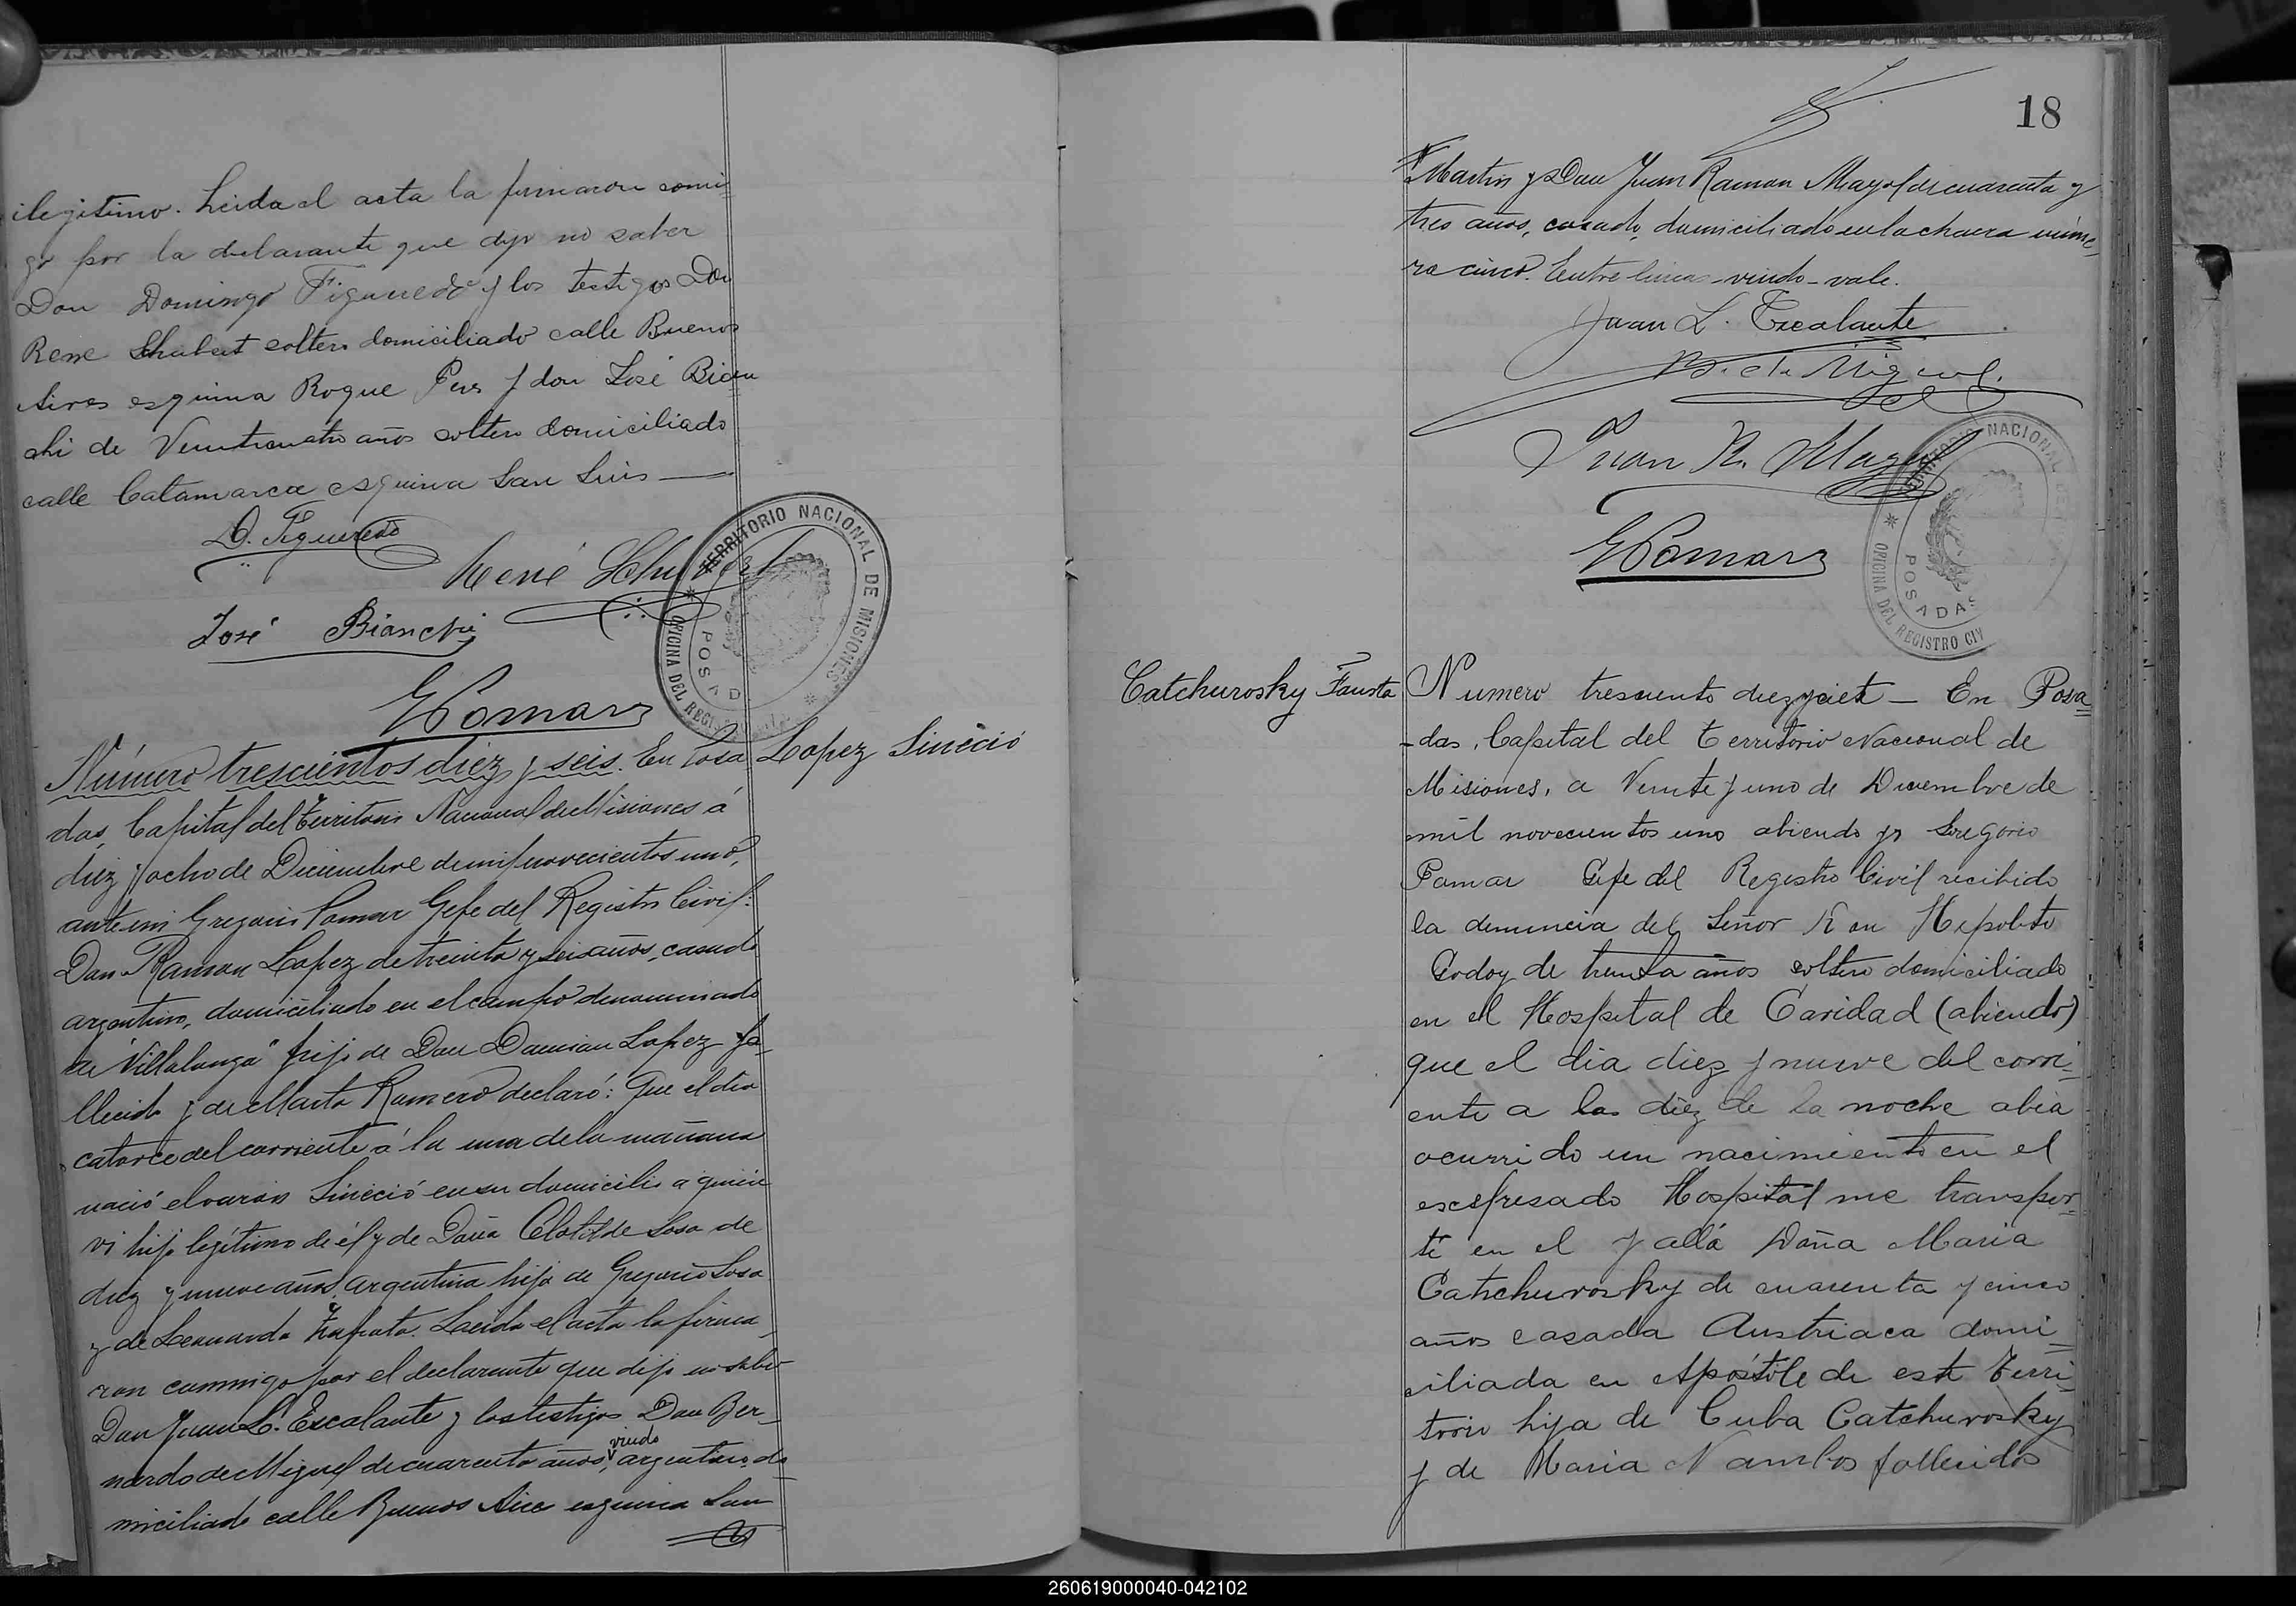 ilegitimo. Leida el acta la firmaron conmi
go por la declarante que dijo no saber
Don Domingo Figueredo y los testigos Don
Rene Shubert soltero domiciliado calle Buenos
Aires esquina Roque Perez y don José Bian
chi de Veinticuatro años soltero domiciliado
calle Catamarca esquina San Luis —
D. Figueredo
René Shubert
José Bianchi
GPomar
TERRITORIO NACIONAL DE MISIONES
OFICINA DEL REGIS
POSAD
Número trescientos diez y seis. En Posa
Lopez Sinecio
das, Capital del Territorio Nacional de Misiones á
diez y ocho de Diciembre de mil novecientos uno,
ante mi Gregorio Pomar Gefe del Registro Civil:
Don Ramon Lopez de treinta y seis años, casado
argentino, domiciliado en el campo denominado
de "Villalonga" hijo de Don Damian Lopez fa-
llecido y de Marta Romero declaró: Que el dia
catorce del corriente á la una de la mañana
nació el varon Sinecio en su domicilio a quien
vi hijo legítimo de él y de Doña Clotilde Sosa de
diez y nueve años, argentina hija de Gregorio Sosa
y de Leonarda Zapata. Leida el acta la firma-
ron conmigo por el declarante que dijo no saber
Don Juan L. Escalante y los testigos Don Ber-
viudo
nardo de Miguel de cuarenta años, argentino, do-
miciliado calle Buenos Aires esquina San
18
Martin y Don Juan Ramon Mayol de cuarenta y
tres años, casado, domiciliado en la chacra núme-
ro cinco. Entre lineas - viudo - vale.
Juan L. Escalante
B. de Miguel
Juan R. Mayol
GPomar
NACIONAL
OFICINA DEL REGISTRO CIV
POSADAS
Catchurosky Fausta
Numero tresciento diez y siete — En Posa-
-das, Capital del Territorio Nacional de
Misiones, a Veinte y uno de Diciembre de
mil novecientos uno abiendo yo Gregorio
Pomar Gefe del Registro Civil recibido
la denuncia del Señor Don Hipolito
Godoy de treinta años soltero domiciliado
en el Hospital de Caridad (abiendo)
que el dia diez y nueve del corri-
ente a las diez de la noche abia
ocurrido un nacimiento en el
escpresado Hospital me transpor-
té en el y allá Doña Maria
Catchurosky de cuarenta y cinco
años casada Austriaca domi-
ciliada en Apóstole de este Terri-
torio hija de Cuba Catchurosky
y de Maria N ambos fallecidos
260619000040-042102